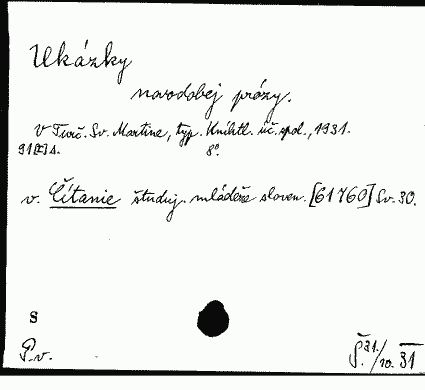 Ukázky
novodobej prózy.
V Turč. Sv. Martine, typ. Kníhtl. úč. spol., 1931.
91[2] s. 8º.
v. Čítanie študuj. mládeže sloven. [61760] Sv. 30.
S
P.v. Š. 31./10. 31